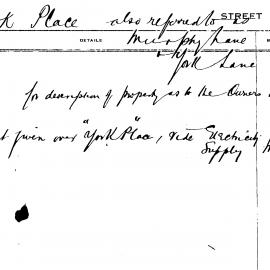 K Place also referred to as STREET
DETAILS Murphy Lane
York Lane
for description of property as to the Owners
t given over "York Place", vide Electricity
Supply